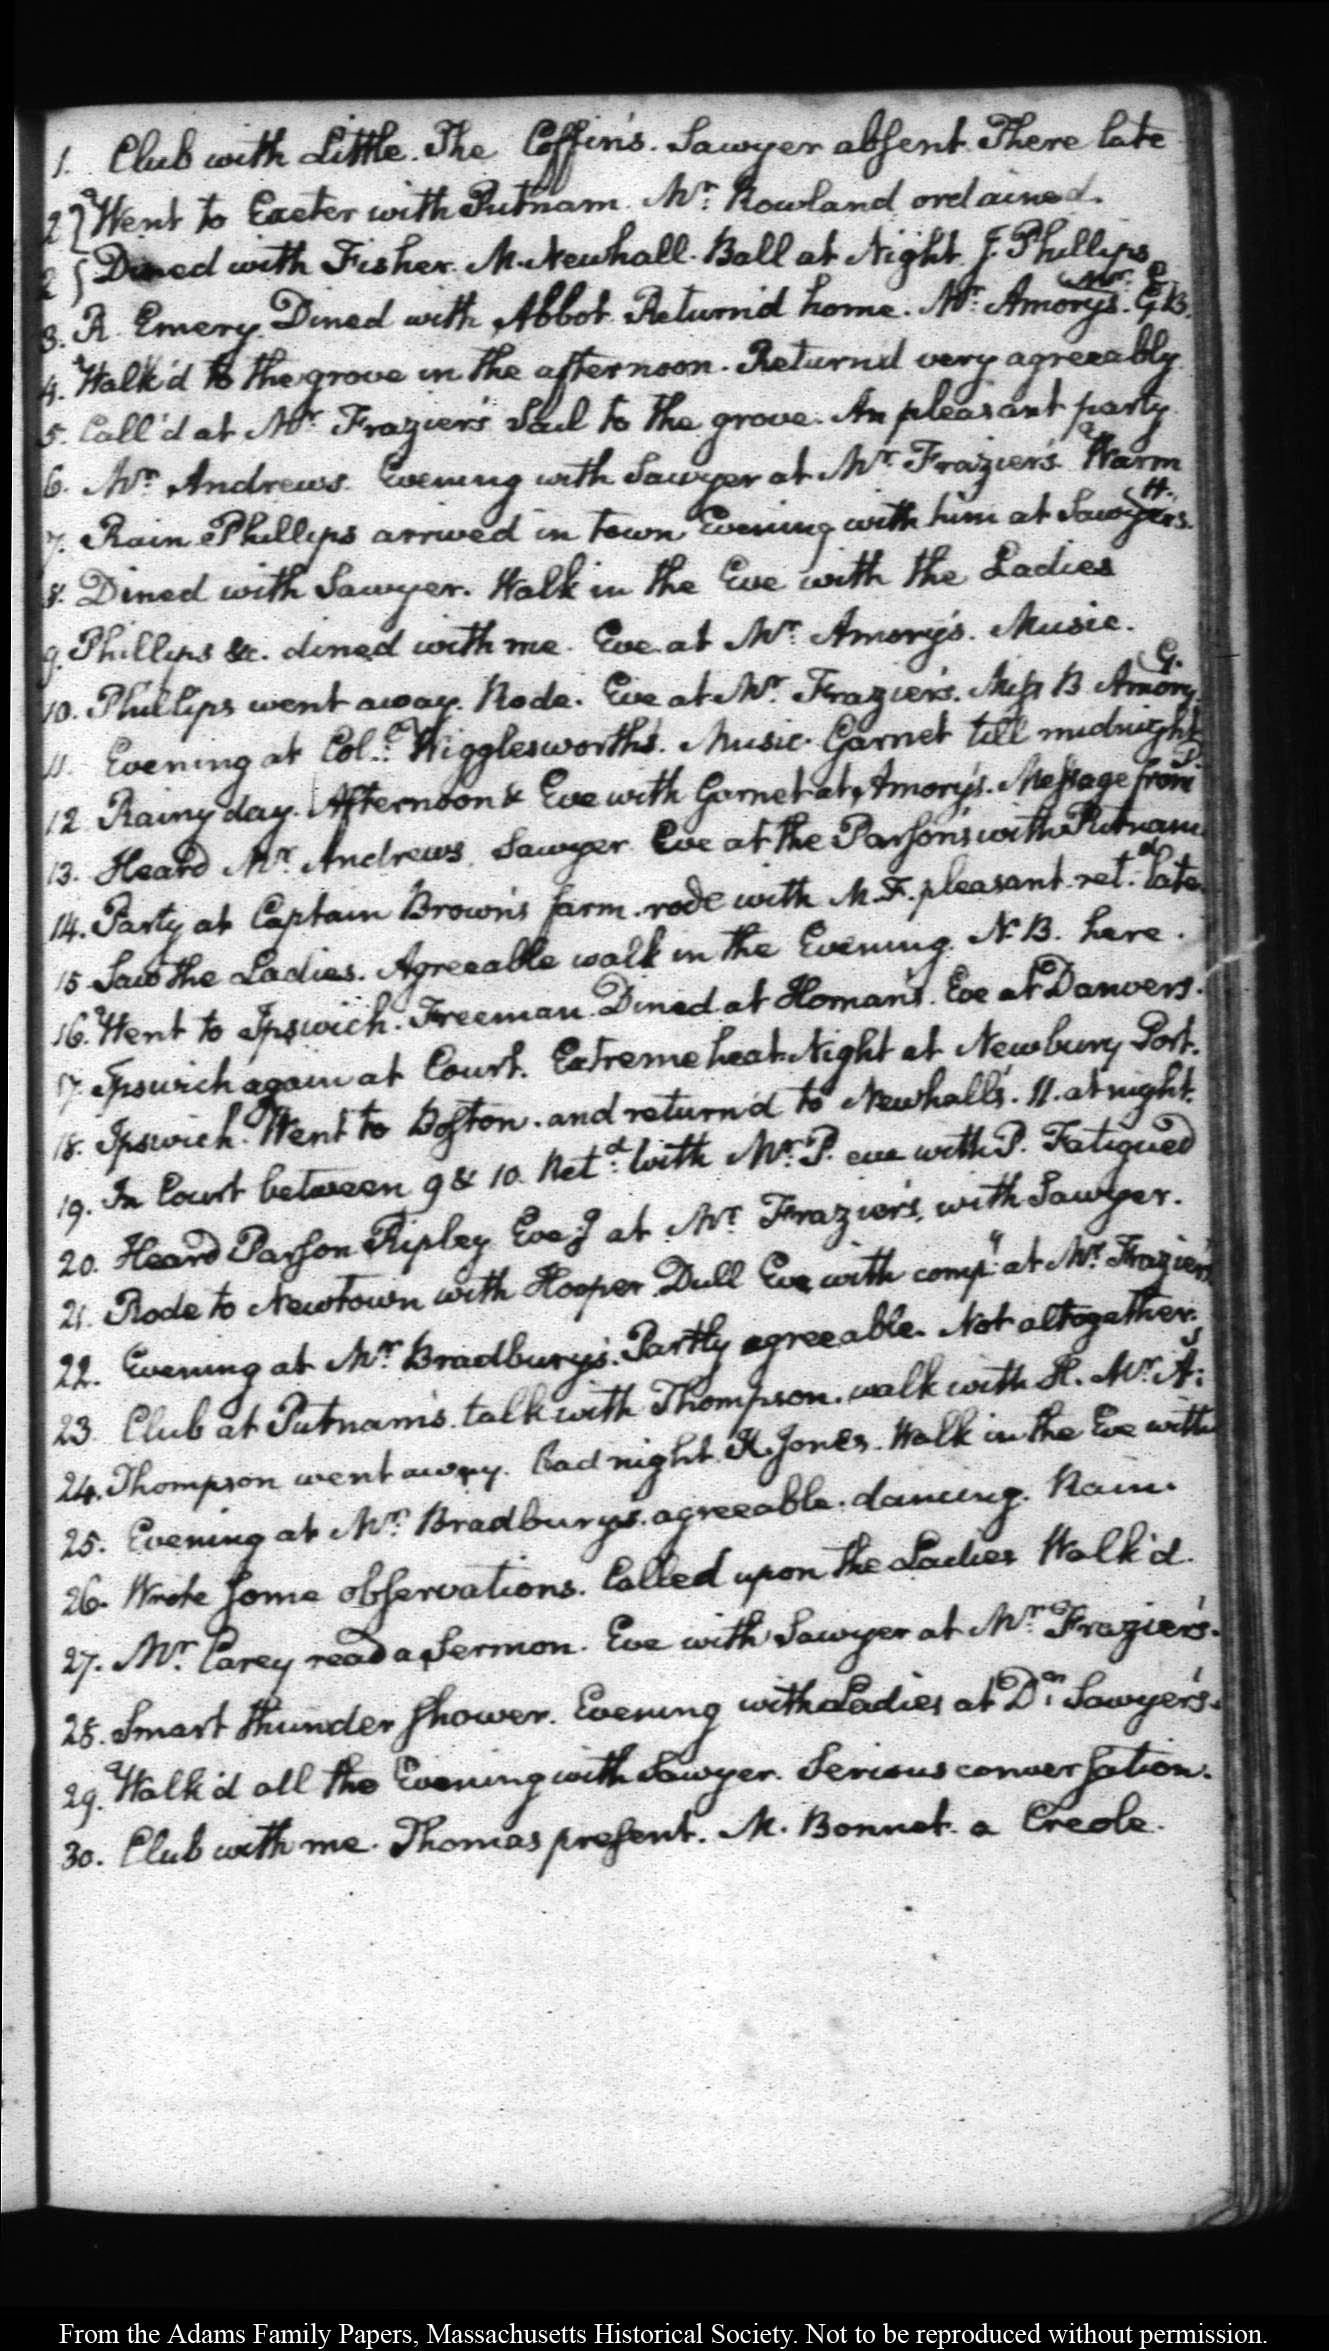 1. Club with Little. The Coffin's. Sawyer absent. There late
2 } Went to Exeter with Putnam. Mr. Rowland ordained.
2 } Dined with Fisher. M. Newhall. Ball at Night. J. Phillips
3. R. Emery. Dined with Abbot. Return'd home. Mr. Amory's.
4. Walk'd to the grove in the afternoon. Return'd very agreeably
5. Call'd at Mr. Frazier's Sail to the grove. An pleasant party
6. Mr. Andrews. Evening with Sawyer at Mr. Frazier's. Warm
7. Rain. Phillips arrived in town Evening with him at Sawyer's. H.
8. Dined with Sawyer. Walk in the Eve with the Ladies
9. Phillips &c. dined with me. Eve at Mr. Amory's. Music.
10. Phillips went away. Rode. Eve at Mr. Frazier's. Miss B Amory G.
11. Evening at Col. Wigglesworth's. Music. Garnet till midnight
12 Rainy day. Afternoon & Eve with Garnet at Amory's. Message from P.
13. Heard Mr. Andrews. Sawyer. Eve at the Parson's with Putnam
14. Party at Captain Brown's farm. rode with M. F. pleasant. ret.d late.
15 Saw the Ladies. Agreeable walk in the Evening. N.B. here.
16. Went to Ipswich. Freeman. Dined at Homan's. Eve at Danvers.
17. Ipswich again at Court. Extreme heat. Night at Newbury Port.
18. Ipswich. Went to Boston. and return'd to Newhall's. 11. at night.
19. In Court between 9 & 10. Ret.d with Mr. P. eve with P. Fatigued
20. Heard Parson Ripley Eve.g at Mr. Frazier's. with Sawyer.
21. Rode to Newtown with Hooper. Dull Eve with comp.y at Mr. Frazier's
22. Evening at Mr. Bradbury's. Partly agreeable. Not altogether.
23. Club at Putnam's. talk with Thompson. walk with H. Mr. A's
24. Thompson went away. bad night. H. Jones. Walk in the Eve with
25. Evening at Mr. Bradbury's. agreeable. dancing. Rain.
26. Wrote some observations. Called upon the Ladies Walk'd.
27. Mr. Carey read a Sermon. Eve with Sawyer at Mr. Frazier's.
28. Smart thunder shower. Evening with Ladies at D.n Sawyer's.
29. Walk'd all the Evening with Sawyer. Serious conversation.
30. Club with me. Thomas present. M. Bonnet. a Creole.
From the Adams Family Papers, Massachusetts Historical Society. Not to be reproduced without permission.